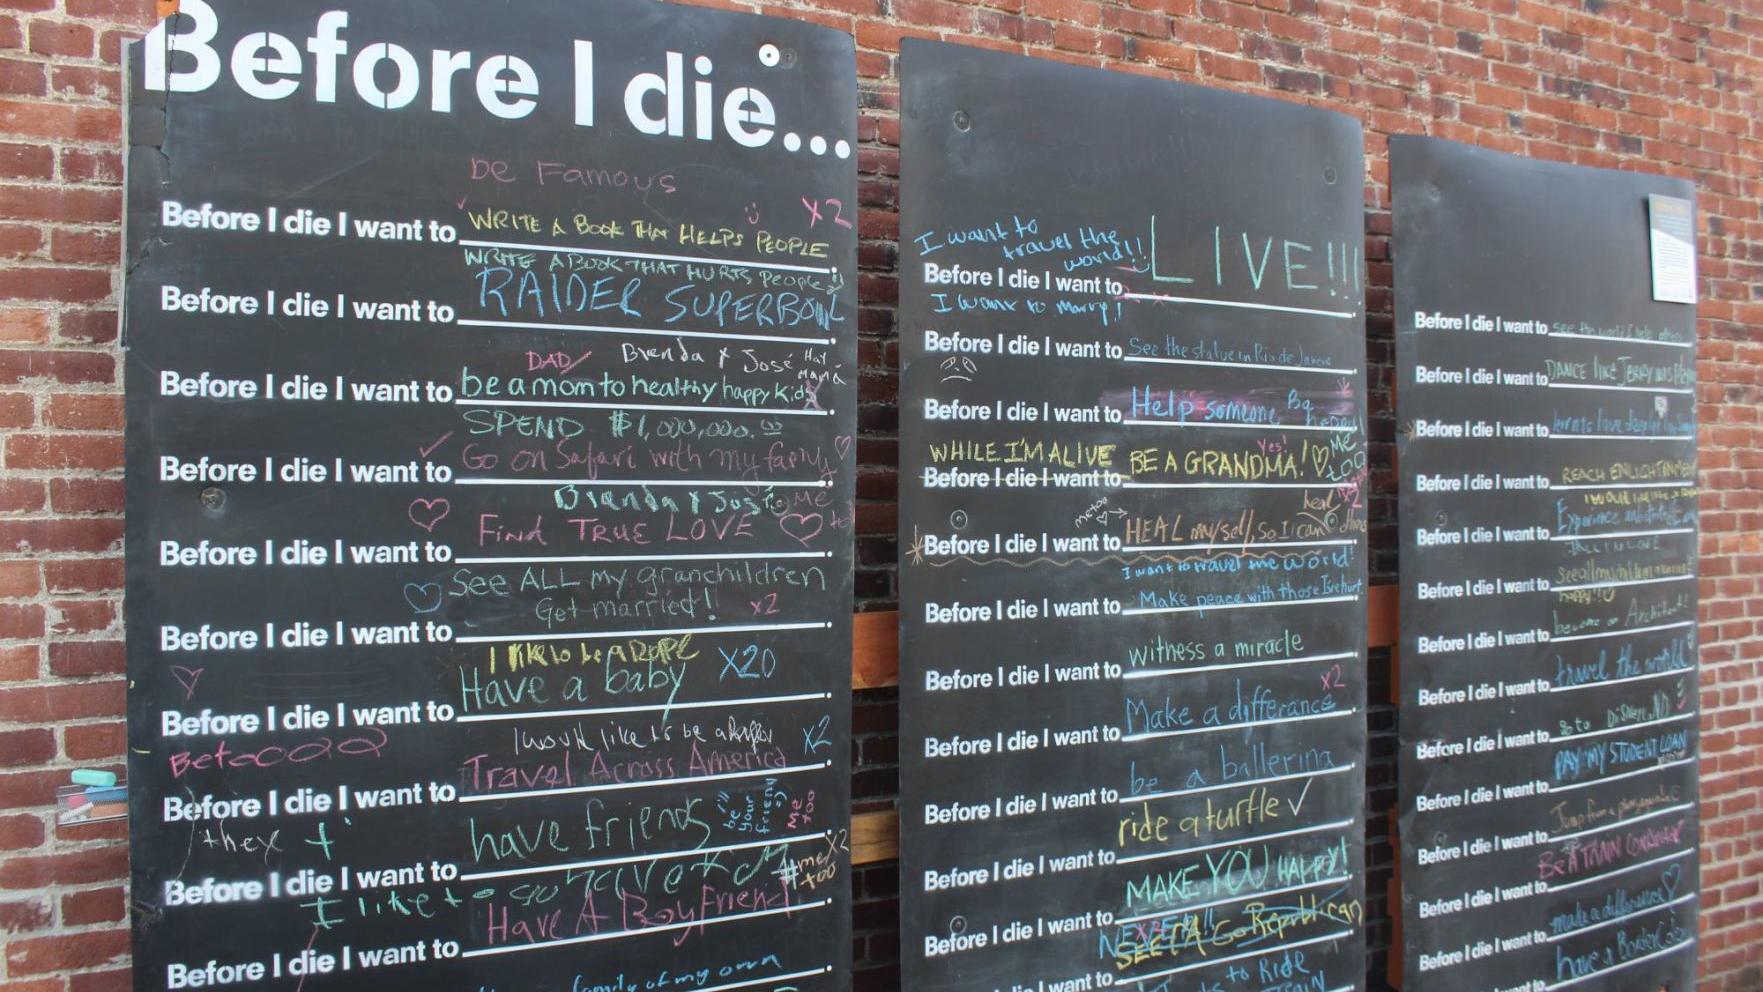 Before I die...
be Famous
Before I die I want to WRITE A BOOK THAT HELPS PEOPLE X2
WRITE A BOOK THAT HURTS People
Before I die I want to RAIDER SUPERBOWL
DAD Brenda & José Hot Mama
Before I die I want to be a mom to healthy happy kids
SPEND $1,000,000.00
Before I die I want to Go on Safari with my family
Brenda & José Me too
Find TRUE LOVE
Before I die I want to
See ALL my granchildren
Get married!! x2
Before I die I want to
I like to be a
Have a baby X20
Before I die I want to
Beto
I would like to be a X2
Travel Across America
Before I die I want to
they +
have friends I'll be your friend :) Me too
Before I die I want to
I like to go #me too X2
Have A BoyFriend
Before I die I want to
family of my own
I want to travel the world!!
Before I die I want to LIVE!!!
I want to marry!
Before I die I want to See the statue in Rio de Janero
Before I die I want to Help someone Be happy!
WHILE I'M ALIVE BE A GRANDMA! Yes! ME TOO
Before I die I want to
me too heal others
Before I die I want to HEAL myself, so I can
I want to travel the world!
Before I die I want to Make peace with those I've hurt
Before I die I want to witness a miracle
Before I die I want to Make a differance x2
Before I die I want to be a ballerina
Before I die I want to ride a turtle ✓
Before I die I want to MAKE YOU HAPPY!
NEVER!!
Before I die I want to SEE LA Go Republican
Before I die I want to to Ride
TRAIN
Before I die I want to see the world & help others
Before I die I want to DANCE like JERRY WAS
Before I die I want to love
Before I die I want to REACH ENLIGHTENMENT
I would like to
Before I die I want to Experience
FALL IN LOVE
Before I die I want to see all my
happy!!
Before I die I want to become an Architect
Before I die I want to travel the world
Before I die I want to go to DiSNEYLAND
Before I die I want to PAY MY STUDENT LOAN
Before I die I want to Jump from a
Before I die I want to BE A TRAIN Conductor
Before I die I want to make a difference
Before I die I want to have a